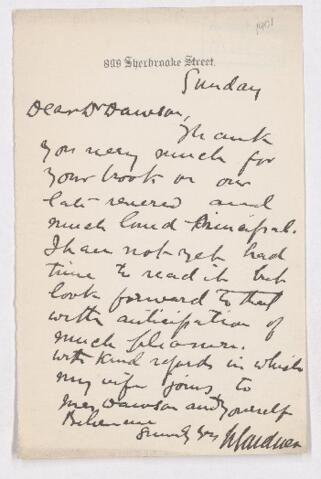 1901
869 Sherbrooke Street.
Sunday
Dear Dr Dawson,
Thank
you very much for
your book on our
late revered and
much loved Principal.
I have not yet had
time to read it but
look forward to that
with anticipation of
much pleasure.
With kind regards in which
my wife joins, to
Mrs Dawson and yourself
Believe me
Sincerely yrs